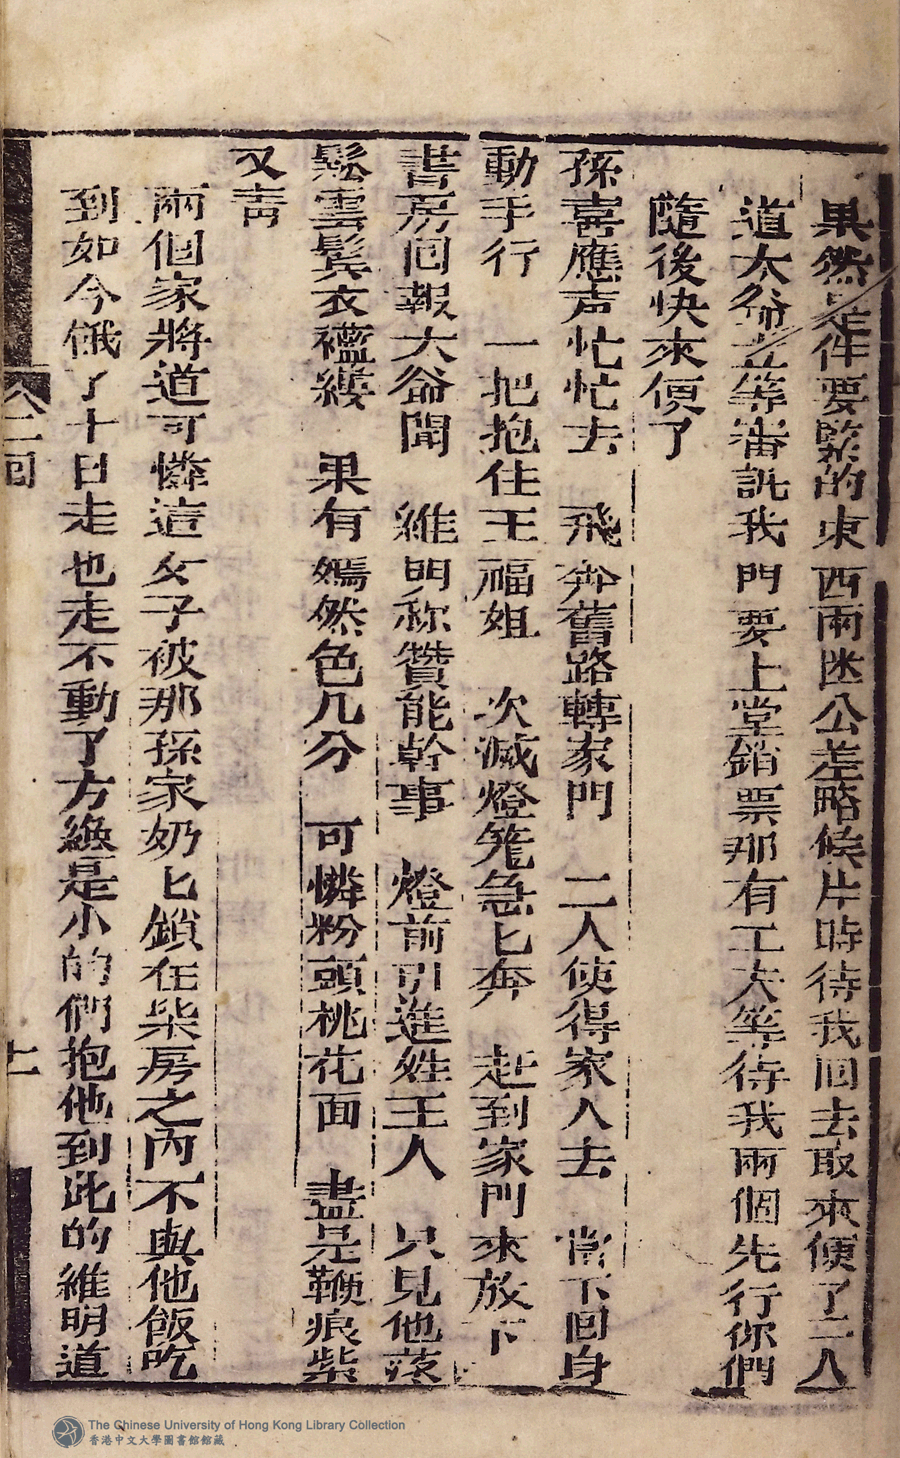 果然是件要緊的東西兩位公差略候片時待我回去取來便了二人
道太爺立等審訊我門要上堂銷票那有工夫等待我兩個先行你們
隨後快來便了
孫喜應声忙忙去　飛奔舊路轉家門　二人使得家人去　當下回身
動手行　一把抱住王福姐　次滅燈笼急匕奔　赶到家門來放下
書房回報大爺聞　維明称贊能幹事　燈前引進姓王人　只見他落
鬆雲鬓衣襤縷　果有嫣然色几分　可憐粉頭桃花面　盡是鞭痕紫
又青
兩個家將道可憐這女子被那孫家奶匕鎖在柴房之內不與他飯吃
到如今餓了十日走也走不動了方纔是小的們抱他到此的維明道
二回
七
The Chinese University of Hong Kong Library Collection
香港中文大學圖書館館藏